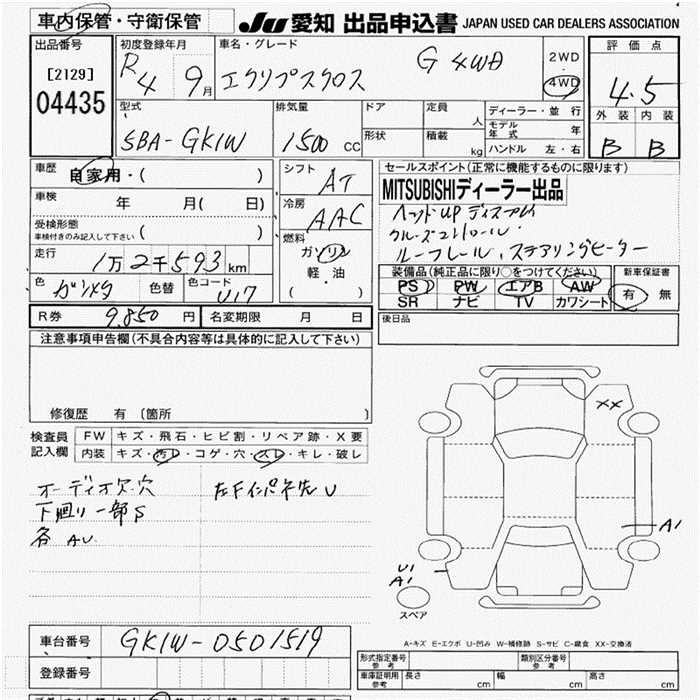 車内保管・守衛保管
JU 愛知 出品申込書 JAPAN USED CAR DEALERS ASSOCIATION
出品番号
[2129]
04435
初度登録年月
R4 9月
車名・グレード
エクリプスクロス G 4WD
2WD
・
4WD
評価点
4.5
外装 内装
B B
型式
5BA-GK1W
排気量
1500 cc
ドア
形状
定員 人
積載 kg
ディーラー・並行
モデル年式 年
ハンドル 左・右
車歴 自家用・( )
車検 年 月( 日)
受検形態
車検付きのみ記入して下さい ( )
走行 1万2千593km
色 ガンメタ 色替 色コード U17
シフト AT
冷房 AAC
燃料
ガソリン
軽・油
( )
セールスポイント(正常に機能するものに限ります)
MITSUBISHIディーラー出品
ヘッドUPディスプレイ
クルーズコントロール
ルーフレール、ステアリングヒーター
装備品(純正品に限り○をつけてください)
PS PW エアB AW
SR ナビ TV カワシート
新車保証書
有 無
R券 9.850円 名変期限 月 日
後日品
注意事項申告欄(不具合内容等は具体的に記入して下さい)
修復歴 有 〔箇所 〕
検査員記入欄
FW キズ・飛石・ヒビ割・リペア跡・X要
内装 キズ・汚レ・コゲ・穴・スレ・キレ・破レ
オーディオ欠.穴 左Fインパネ先U
下廻り一部S
各AU
XX
A1
U1
A1
スペア
A-キズ E-エクボ U-凹み W-補修跡 S-サビ C-腐食 XX-交換済
車台番号 GK1W-0501519
登録番号
形式指定番号 参考
類別区分番号 参考
車庫証明用 参考 長さ cm 幅 cm 高さ cm